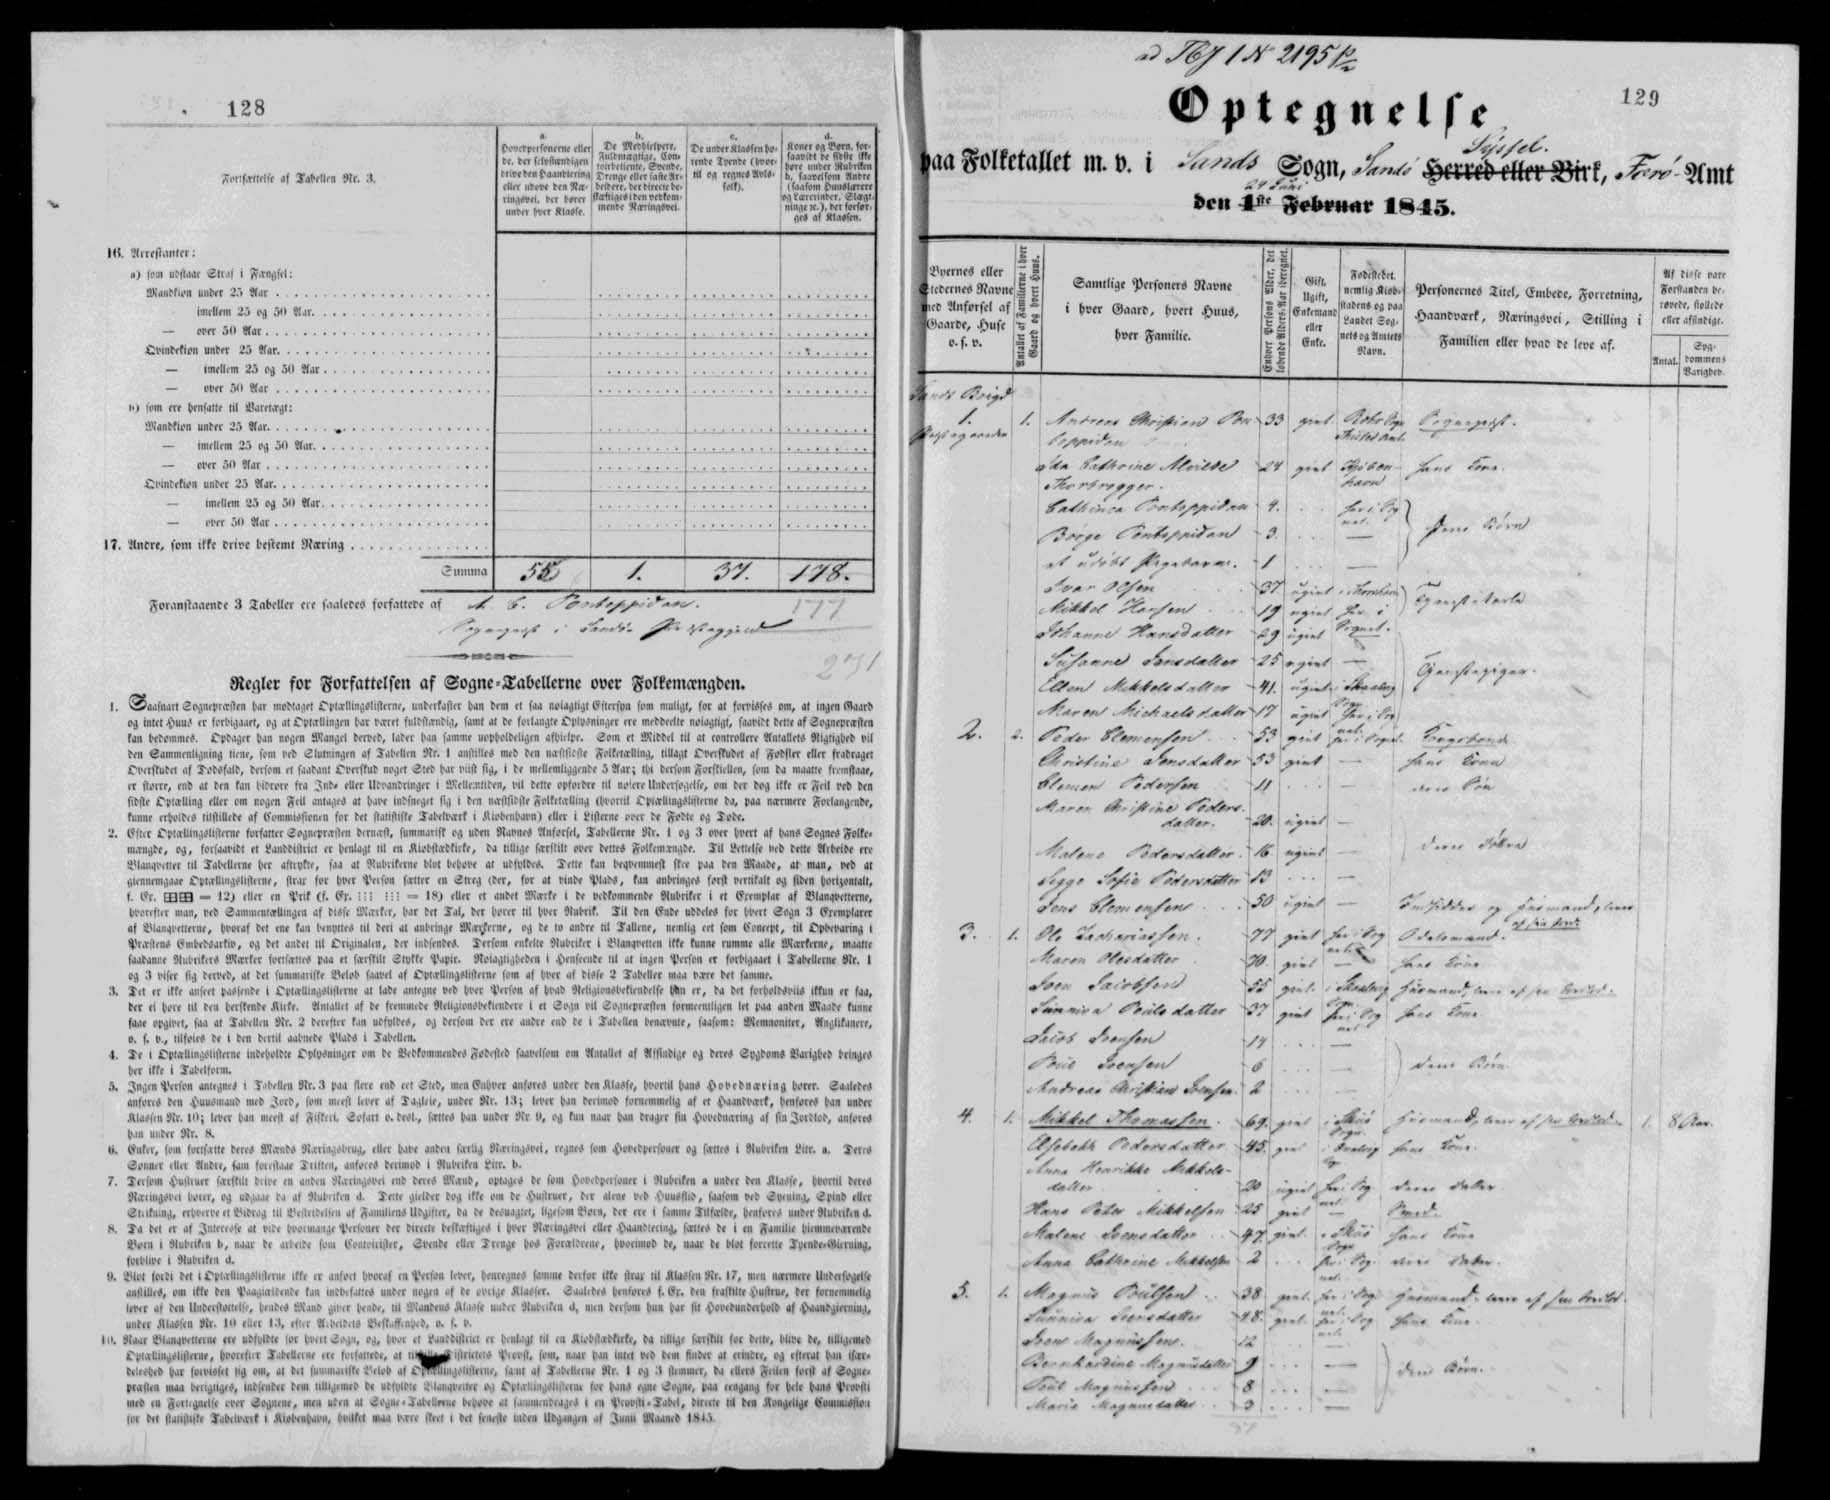 128
Fortsættelse af Tabellen Nr. 3.
a. Hovedpersonerne eller de, der selvstændigen drive den Haandtering eller udøve den Næringsvei, der hører under hver Klasse.
b. De Medhjelpere, Fuldmægtige, Contoirbetiente, Svende, Drenge eller faste Arbeidere, der directe beskæftiges i den vedkommende Næringsvei.
c. De under Klassen hørende Tyende (hvortil og regnes Avlsfolk).
d. Koner og Børn, forsaavidt de sidste ikke høre under Rubriken b, saavelsom Andre (saasom Huuslærere og Lærerinder, Slægtninge ꝛc.), der forsørges af Klassen.
16. Arrestanter:
a) som udstaae Straf i Fængsel:
Mandkiøn under 25 Aar
imellem 25 og 50 Aar
— over 50 Aar
Qvindekiøn under 25 Aar
— imellem 25 og 50 Aar
— over 50 Aar
b) som ere hensatte til Varetægt:
Mandkiøn under 25 Aar
— imellem 25 og 50 Aar
— over 50 Aar
Qvindekiøn under 25 Aar
— imellem 25 og 50 Aar
— over 50 Aar
17. Andre, som ikke drive bestemt Næring
Summa 55 1. 37. 178.
Foranstaaende 3 Tabeller ere saaledes forfattede af A. C. Pontoppidan. 177
Sognepræst i Sandø Præstegjeld
271
Regler for Forfattelsen af Sogne-Tabellerne over Folkemængden.
1. Saasnart Sognepræsten har modtaget Optællingslisterne, underkaster han dem et saa nøiagtigt Eftersyn som muligt, for at forvisses om, at ingen Gaard
og intet Huus er forbigaaet, og at Optællingen har været fuldstændig, samt at de forlangte Oplysninger ere meddeelte nøiagtigt, saavidt dette af Sognepræsten
kan bedømmes. Opdager han nogen Mangel derved, lader han samme uopholdeligen afhielpe. Som et Middel til at controllere Antallets Rigtighed vil
den Sammenligning tiene, som ved Slutningen af Tabellen Nr. 1 anstilles med den næstsidste Folketælling, tillagt Overskudet af Fødsler eller fradraget
Overskudet af Dødsfald, dersom et saadant Overskud noget Sted har viist sig, i de mellemliggende 5 Aar; thi dersom Forskiellen, som da maatte fremstaae,
er større, end at den kan hidrøre fra Ind- eller Udvandringer i Mellemtiden, vil dette opfordre til nøiere Undersøgelse, om der dog ikke er Feil ved den
sidste Optælling eller om nogen Feil antages at have indsneget sig i den næstsidste Folketælling (hvortil Optællingslisterne da, paa nærmere Forlangende,
kunne erholdes tilstillede af Commissionen for det statistiske Tabelværk i Kiøbenhavn) eller i Listerne over de Fødte og Døde.
2. Efter Optællingslisterne forfatter Sognepræsten dernæst, summarisk og uden Navnes Anførsel, Tabellerne Nr. 1 og 3 over hvert af hans Sognes Folke-
mængde, og, forsaavidt et Landdistrict er henlagt til en Kiøbstadkirke, da tillige særskilt over dettes Folkemængde. Til Lettelse ved dette Arbeide ere
Blanqvetter til Tabellerne her aftrykte, saa at Rubrikerne blot behøve at udfyldes. Dette kan beqvemmest skee paa den Maade, at man, ved at
giennemgaae Optællingslisterne, strax for hver Person sætter en Streg (der, for at vinde Plads, kan anbringes først vertikalt og siden horizontalt,
f. Ex. = 12) eller en Prik (f. Ex. ⁝⁝⁝ ⁝⁝⁝ = 18) eller et andet Mærke i de vedkommende Rubriker i et Exemplar af Blanqvetterne,
hvorefter man, ved Sammentællingen af disse Mærker, har det Tal, der hører til hver Rubrik. Til den Ende uddeles for hvert Sogn 3 Exemplarer
af Blanqvetterne, hvoraf det ene kan benyttes til deri at anbringe Mærkerne, og de to andre til Tallene, nemlig eet som Concept, til Opbevaring i
Præstens Embedsarkiv, og det andet til Originalen, der indsendes. Dersom enkelte Rubriker i Blanqvetten ikke kunne rumme alle Mærkerne, maatte
saadanne Rubrikers Mærker fortsættes paa et særskilt Stykke Papir. Nøiagtigheden i Henseende til at ingen Person er forbigaaet i Tabellerne Nr. 1
og 3 viser sig derved, at det summariske Beløb saavel af Optællingslisterne som af hver af disse 2 Tabeller maa være det samme.
3. Det er ikke anseet passende i Optællingslisterne at lade antegne ved hver Person af hvad Religionsbekiendelse han er, da det forholdsviis ikkun er faa,
der ei høre til den herskende Kirke. Antallet af de fremmede Religionsbekiendere i et Sogn vil Sognepræsten formeentligen let paa anden Maade kunne
faae opgivet, saa at Tabellen Nr. 2 derefter kan udfyldes, og dersom der ere andre end de i Tabellen benævnte, saasom: Memnoniter, Anglikanere,
o. s. v., tilføies de i den dertil aabnede Plads i Tabellen.
4. De i Optællingslisterne indeholdte Oplysninger om de Vedkommendes Fødested saavelsom om Antallet af Afsindige og deres Sygdoms Varighed bringes
her ikke i Tabelform.
5. Ingen Person antegnes i Tabellen Nr. 3 paa flere end eet Sted, men Enhver anføres under den Klasse, hvortil hans Hovednæring hører. Saaledes
anføres den Huusmand med Jord, som meest lever af Dagleie, under Nr. 13; lever han derimod fornemmelig af et Haandværk, henføres han under
Klassen Nr. 10; lever han meest af Fiskeri, Søfart o. desl., sættes han under Nr. 9, og kun naar han drager sin Hovednæring af sin Jordlod, anføres
han under Nr. 8.
6. Enker, som fortsætte deres Mænds Næringsbrug, eller have anden særlig Næringsvei, regnes som Hovedpersoner og sættes i Rubriken Litr. a. Deres
Sønner eller Andre, som forestaae Driften, anføres derimod i Rubriken Litr. b.
7. Dersom Hustruer særskilt drive en anden Næringsvei end deres Mænd, optages de som Hovedpersoner i Rubriken a under den Klasse, hvortil deres
Næringsvei hører, og udgaae da af Rubriken d. Dette gielder dog ikke om de Hustruer, der alene ved Huusflid, saasom ved Syening, Spind eller
Strikning, erhverve et Bidrag til Bestridelsen af Familiens Udgifter, da de desuagtet, ligesom Børn, der ere i samme Tilfælde, henføres under Rubriken d.
8. Da det er af Interesse at vide hvormange Personer der directe beskæftiges i hver Næringsvei eller Haandtering, sættes de i en Familie hiemmeværende
Børn i Rubriken b, naar de arbeide som Contoirister, Svende eller Drenge hos Forældrene, hvorimod de, naar de blot forrette Tyende-Gierning,
forblive i Rubriken d.
9. Blot fordi det i Optællingslisterne ikke er anført hvoraf en Person lever, henregnes samme derfor ikke strax til Klassen Nr. 17, men nærmere Undersøgelse
anstilles, om ikke den Paagiældende kan indbefattes under nogen af de øvrige Klasser. Saaledes henføres f. Ex. den fraskilte Hustrue, der fornemmelig
lever af den Understøttelse, hendes Mand giver hende, til Mandens Klasse under Rubriken d, men dersom hun har sit Hovedunderhold af Haandgierning,
under Klassen Nr. 10 eller 13, efter Arbeidets Beskaffenhed, o. s. v.
10. Naar Blanqvetterne ere udfyldte for hvert Sogn, og, hvor et Landdistrict er henlagt til en Kiøbstadkirke, da tillige særskilt for dette, blive de, tilligemed
Optællingslisterne, hvorefter Tabellerne ere forfattede, at tilstille Districtets Provst, som, naar han intet ved dem finder at erindre, og efterat han især-
deleshed har forvisset sig om, at det summariske Beløb af Optællingslisterne, samt af Tabellerne Nr. 1 og 3 stemmer, da ellers Feilen først af Sogne-
præsten maa berigtiges, indsender dem tilligemed de udfyldte Blanqvetter og Optællingslisterne for hans egne Sogne, paa eengang for hele hans Provsti
med en Fortegnelse over Sognene, men uden at Sogne-Tabellerne behøve at sammendrages i en Provsti-Tabel, directe til den Kongelige Commission
for det statistiske Tabelværk i Kiøbenhavn, hvilket maa være skeet i det seneste inden Udgangen af Junii Maaned 1845.
129
Optegnelse
Syssel.
paa Folketallet m. v. i Sands Sogn, Sandø Herred eller Birk, Færø-Amt
24 Juni
den 1ste Februar 1845.
Byernes eller Stedernes Navne med Anførsel af Gaarde, Huse o. s. v.
Antallet af Familierne i hver Gaard og hvert Huus.
Samtlige Personers Navne i hver Gaard, hvert Huus, hver Familie.
Enhver Persons Alder, det løbende Alders-Aar iberegnet.
Gift, Ugift, Enkemand eller Enke.
Fødestedet, nemlig Kiøbstadens og paa Landet Sognets og Amtets Navn.
Personernes Titel, Embede, Forretning, Haandværk, Næringsvei, Stilling i Familien eller hvad de leve af.
Af disse vare Forstanden berøvede, fiollede eller afsindige.
Antal. Sygdommens Varighed.
Sands Bøigd
1. 1. Andreas Christian Pon- 33 givt Sognepræst.
Præstegaarden toppidan
Ida Cathrine Alvilde 24 givt Kjöben- hans Kone.
Thorbrøgger. havn
Cathinca Pontoppidan 4. her i Sog
Børge Pontoppidan 3. — Deres Børn
et udøbt Pigebarn. 1 —
Ivar Olsen 37 ugivt i Thorshavn
Mikkel Hansen 19 ugivt her i Tjenestekarle
Johanne Hansdatter 29 ugivt Sognet.
Susanne Jensdatter 25 ugivt — Tjenestepiger.
Ellen Mikkelsdatter 41. ugivt i Skaalevig Sogn
Maren Michaelsdatter 17 ugivt her i Sog
2. 2. Peder Clemensen 53 givt her i Sognet. Kongsbonde
Christine Jensdatter 53 givt — hans Kone
Clemen Pedersen 11 — deres Søn
Maren Christine Peders-
datter. 20. ugivt —
Malene Pedersdatter. 16 ugivt — deres Døttre
Sigge Sofie Pedersdatter 13 —
Jens Clemensen 50 ugivt — Indsidder og Huusmand, lever
af sin Jord.
3. 1. Ole Zachariassen. 77 givt her i Sog Odelsmand.
Maren Olesdatter 70. givt — hans Kone
Joen Jacobsen 55 givt. i Skaalevig Huusmand, lever af sin Jordlod.
Sunniva Poulsdatter 37 givt her i Sog hans Kone
Jacob Joensen 14 —
Poul Joensen 6 — deres Børn
Andreas Christian Joensen. 2 —
4. 1. Mikkel Thomassen. 69. givt i Skuø Sogn Huusmand, lever af sin Jordlod. 1. 8 Aar.
Elsebeth Pedersdatter 45. givt hans Kone.
Anna Henrikke Mikkels-
datter 20 ugivt her i Sog deres Datter
Hans Peter Mikkelsen 25 givt — Smed.
Malene Joensdatter 47. givt. i Skuø Sogn hans Kone
Anna Cathrine Mikkelsen 2 her i Sog. deres Datter.
5. 1. Magnus Poulsen 38 givt. her i Sog Huusmand, lever af sin Jordlod.
Sunniva Joensdatter 48. givt. her i Sog hans Kone
Joen Magnussen. 12 —
Bernhardine Magnusdatter 9 — deres Børn.
Poul Magnussen 8 —
Maria Magnusdatter 3 —
37